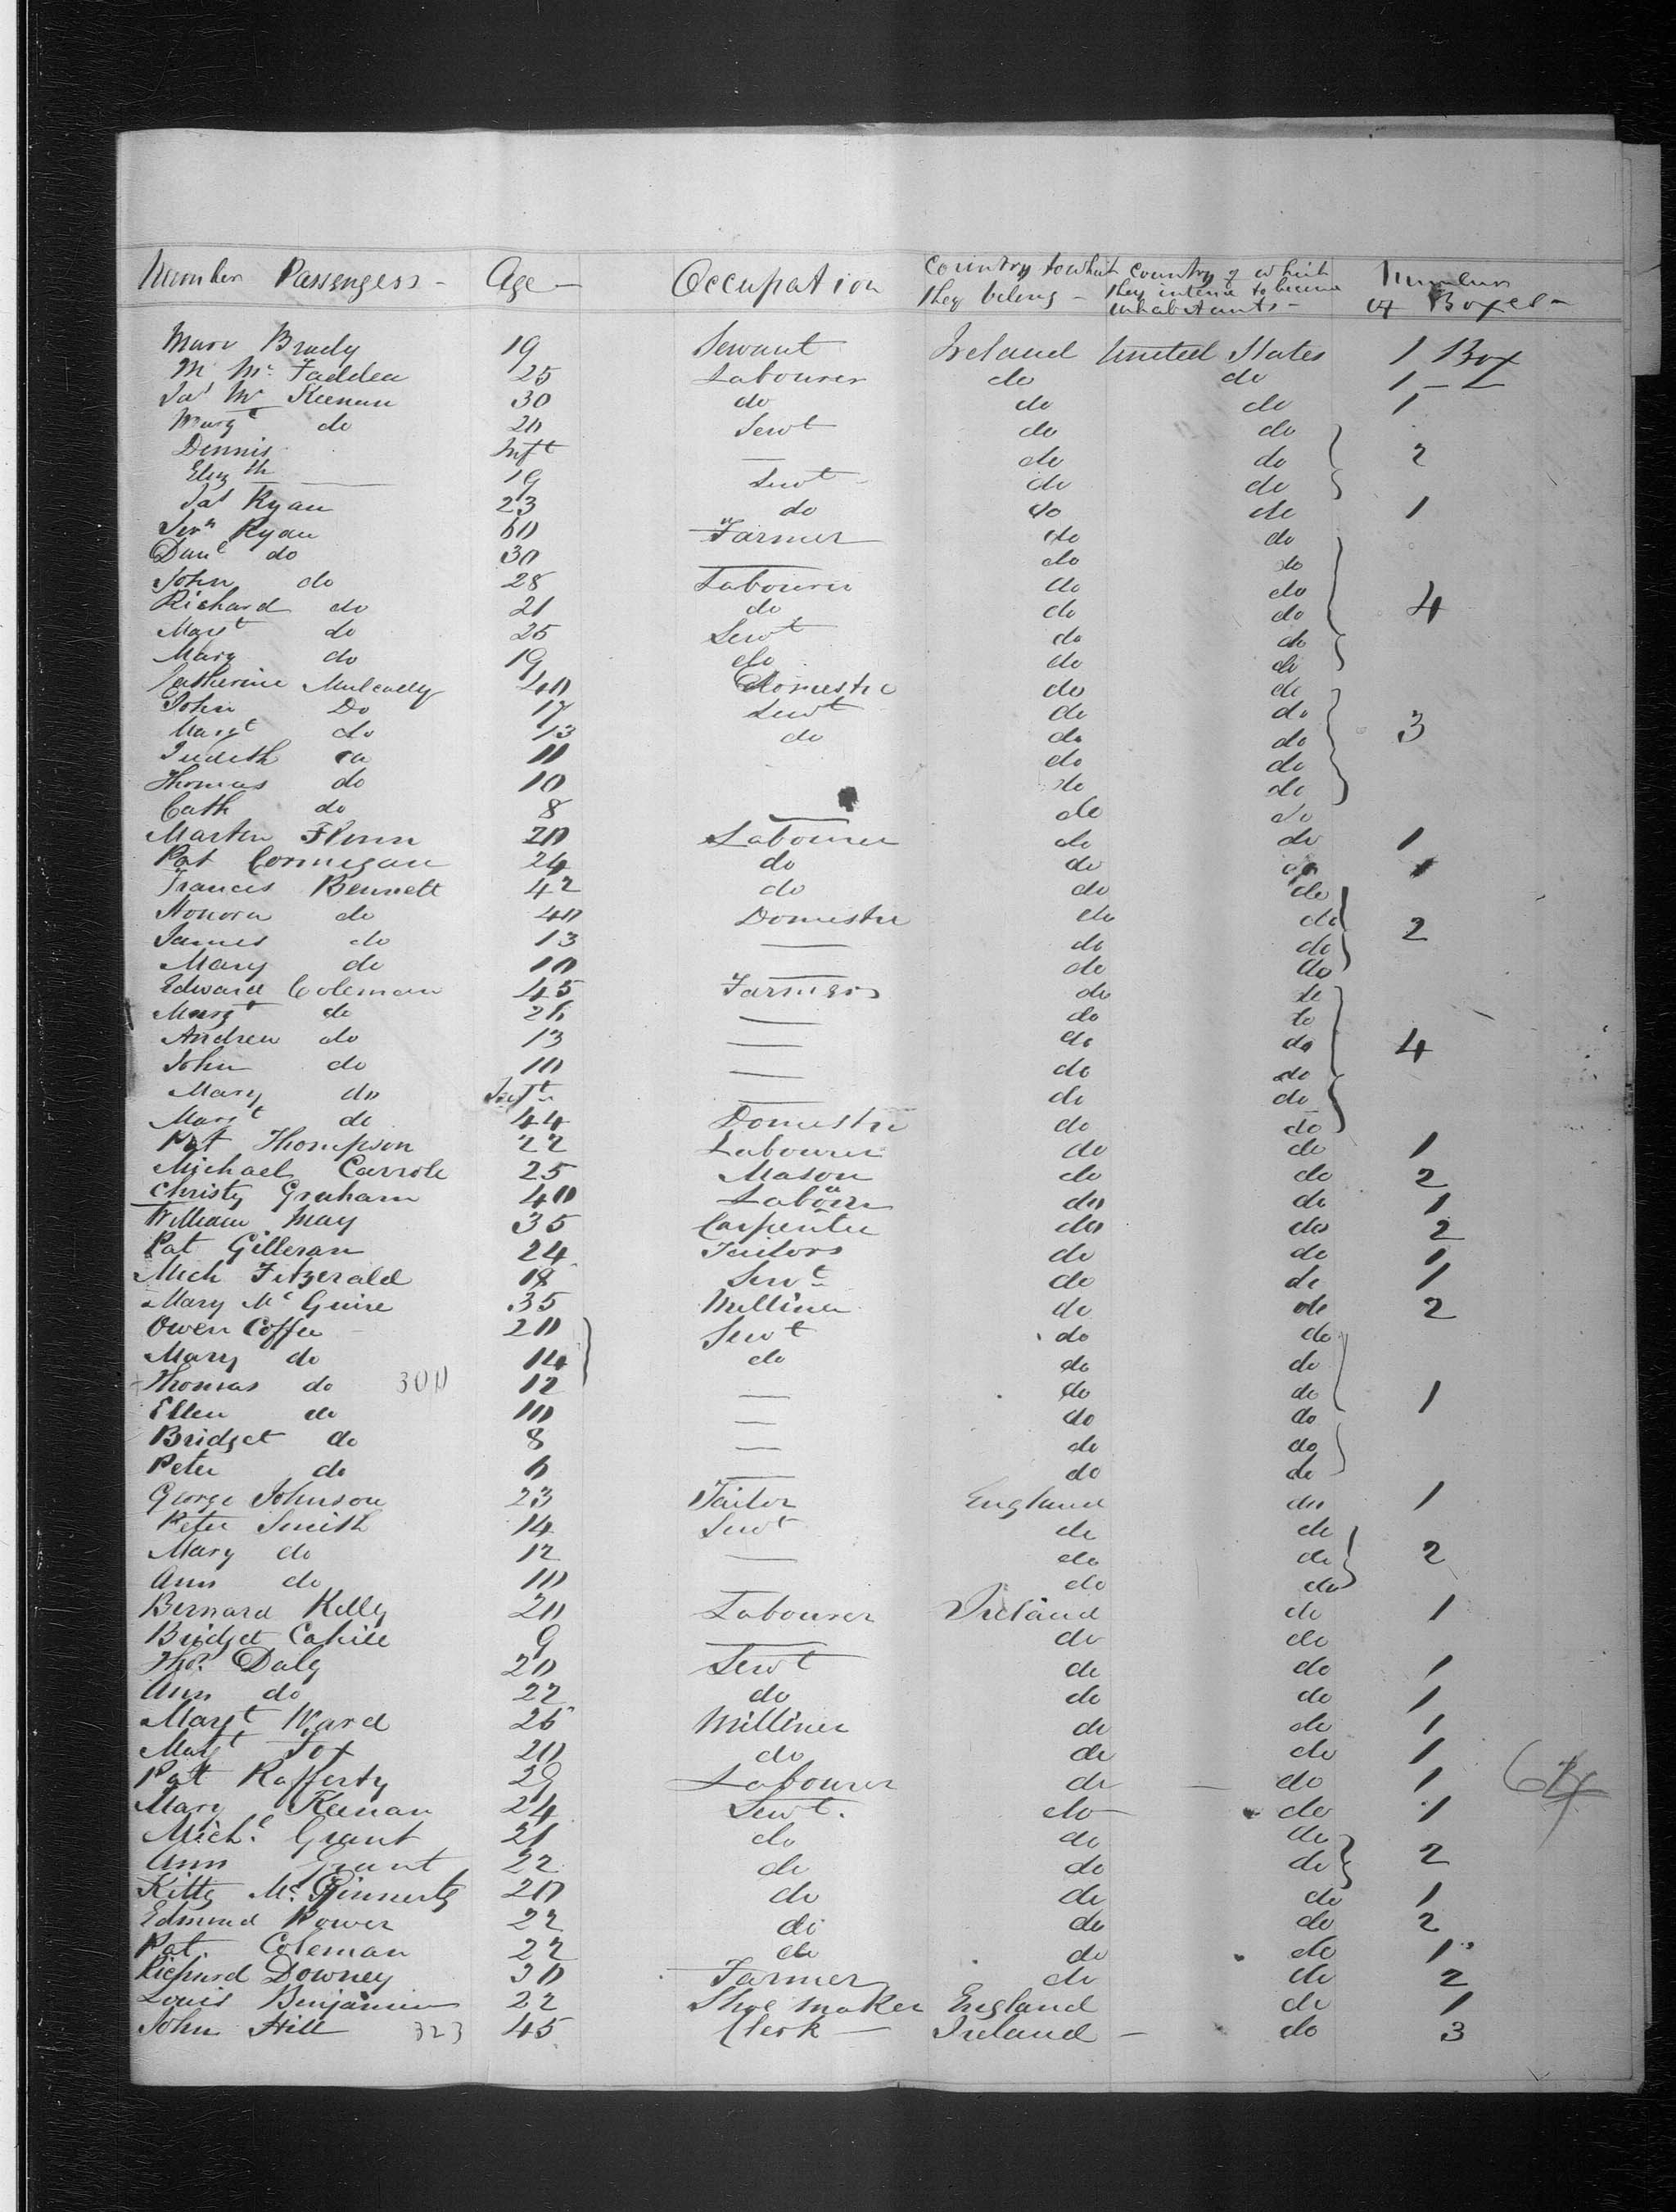 Number Passengers - Age - Occupation Country to which they belong - Country of which they intend to become inhabitants - Number of Boxes -
Mary Brady 19 Servant Ireland United States 1 Box
M Mc Fadden 25 Labourer do do 1 -
Jas Mc Keenan 30 do do do 1
Margt do 20 Servt do do
Dennis Inft — do do 2
Eliz th — 19 Servt do do
Jas Ryan 23 do do do 1
Jer n Ryan 60 Farmer do do
Danl do 30 — do do
John do 28 Labourer do do
Richard do 21 do do do 4
Margt do 25 Servt do do
Mary do 19 do do do
Catherine Mulcaely 40 Domestic do do
John Do 17 Servt do do
Margt do 13 do do do 3
Judith do 11 do do
Thomas do 10 do do
Cath do 8 — do do
Martin Flinn 20 Labourer do do 1
Pat Cormigan 24 do do do 1
Francis Bennett 42 do do do
Honora do 40 Domestic do do 2
James do 13 — do do
Mary do 10 — do do
Edward Coleman 45 Farmer do do
Margt do 26 — do do
Andrew do 13 — do do 4
John do 10 — do do
Mary do Inft — do do
Margt do 44 Domestic do do
Pat Thompson 22 Labourer do do 1
Michael Carrole 25 Mason do do 2
Christy Graham 40 Labour do do 1
William May 35 Carpenter do do 2
Pat Gilleran 24 Tailors do do 1
Mich Fitzerald 18 Servt do do 1
Mary Mc Guire 35 Milliner do do 2
Owen Coffee 20 Servt do do
Mary do 14 do do do
Thomas do 300 12 — do do 1
Ellen do 10 — do do
Bridget do 8 — do do
Peter do 6 — do do
George Johnson 23 Tailor England do 1
Peter Smith 14 Servt do do
Mary do 12 — do do 2
Ann do 10 do do
Bernard Kelly 20 Labourer Ireland do 1
Bridget Cahill 9 — do do
Thos. Daly 20 Servt do do 1
Ann do 22 do do do 1
Margt Ward 26 Milliner do do 1
Margt Fox 20 do do do 1
Pat Rafferty 29 Labourer do do 1
Mary Keenan 24 Servt. do do 1
Michl. Grant 21 do do do
Ann Grant 22 do do do 2
Kitty Mc. Ginnerty 20 do do do 1
Edmund Power 22 do do do 2
Pat. Coleman 22 do do do 1
Richard Downey 30 Farmer do do 2
Louis Benjamin 22 Shoe maker England do 1
John Hill 323 45 Clerk — Ireland — do 3